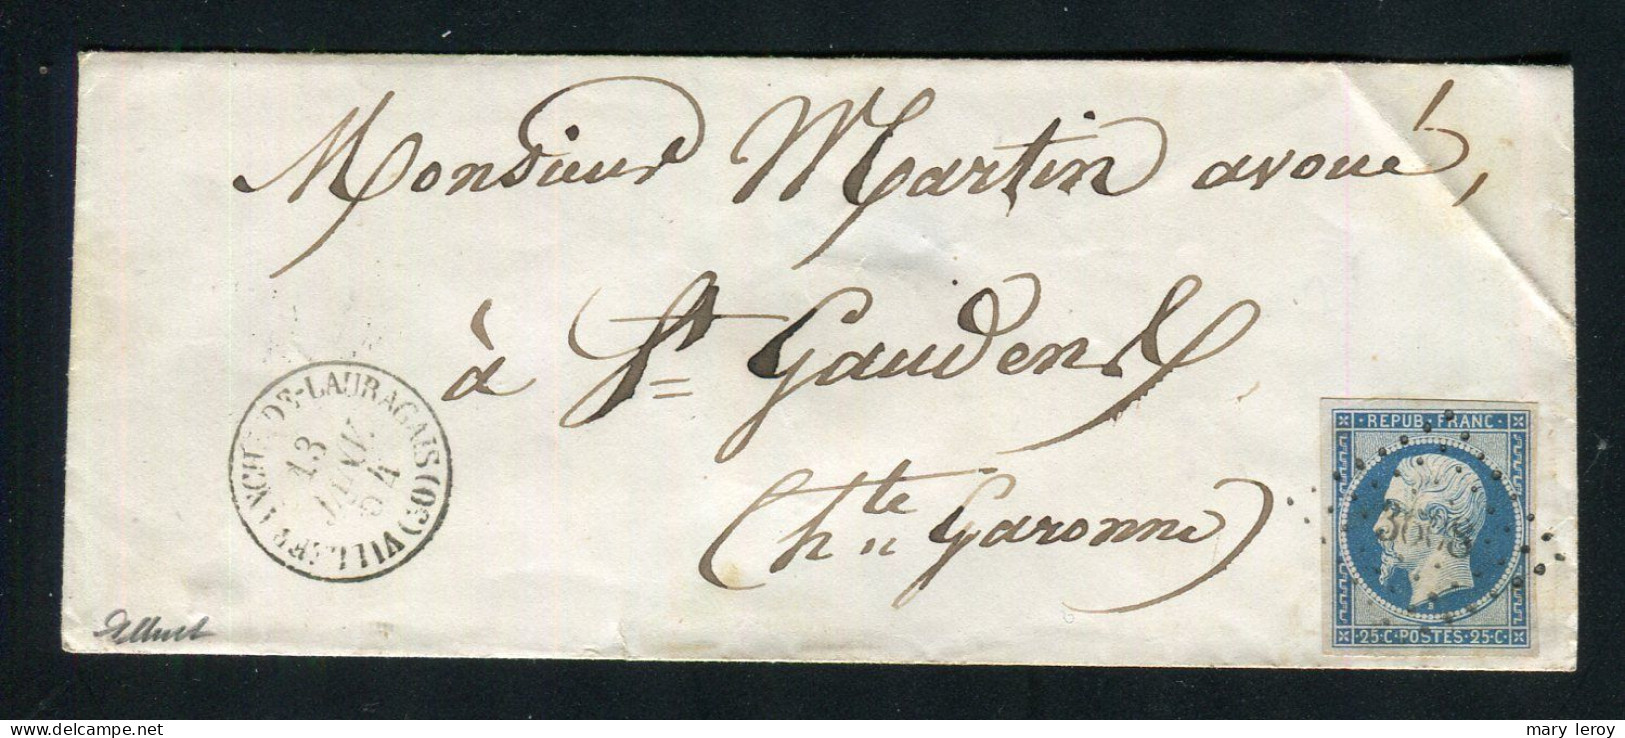 Monsieur Martin avoué,
à St Gaudens
(hte Garonne)
VILLEFRANCHE-DE-LAURAGAIS (30)
13
JANV.
54
REPUB. FRANC.
25.C. POSTES. 25.C.
mary leroy